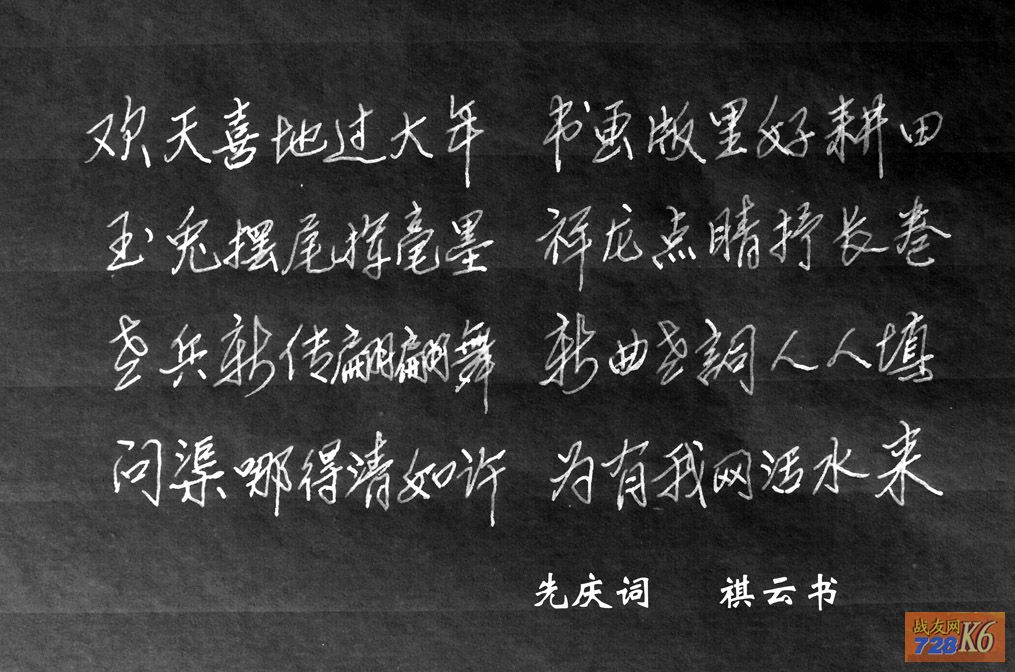 欢天喜地过大年 书画版里好耕田
玉兔摆尾挥毫墨 祥龙点睛抒长卷
老兵新传翩翩舞 新曲老詞人人填
问渠哪得清如许 为有我网活水来
先庆词 祺云书
战友网
728K6